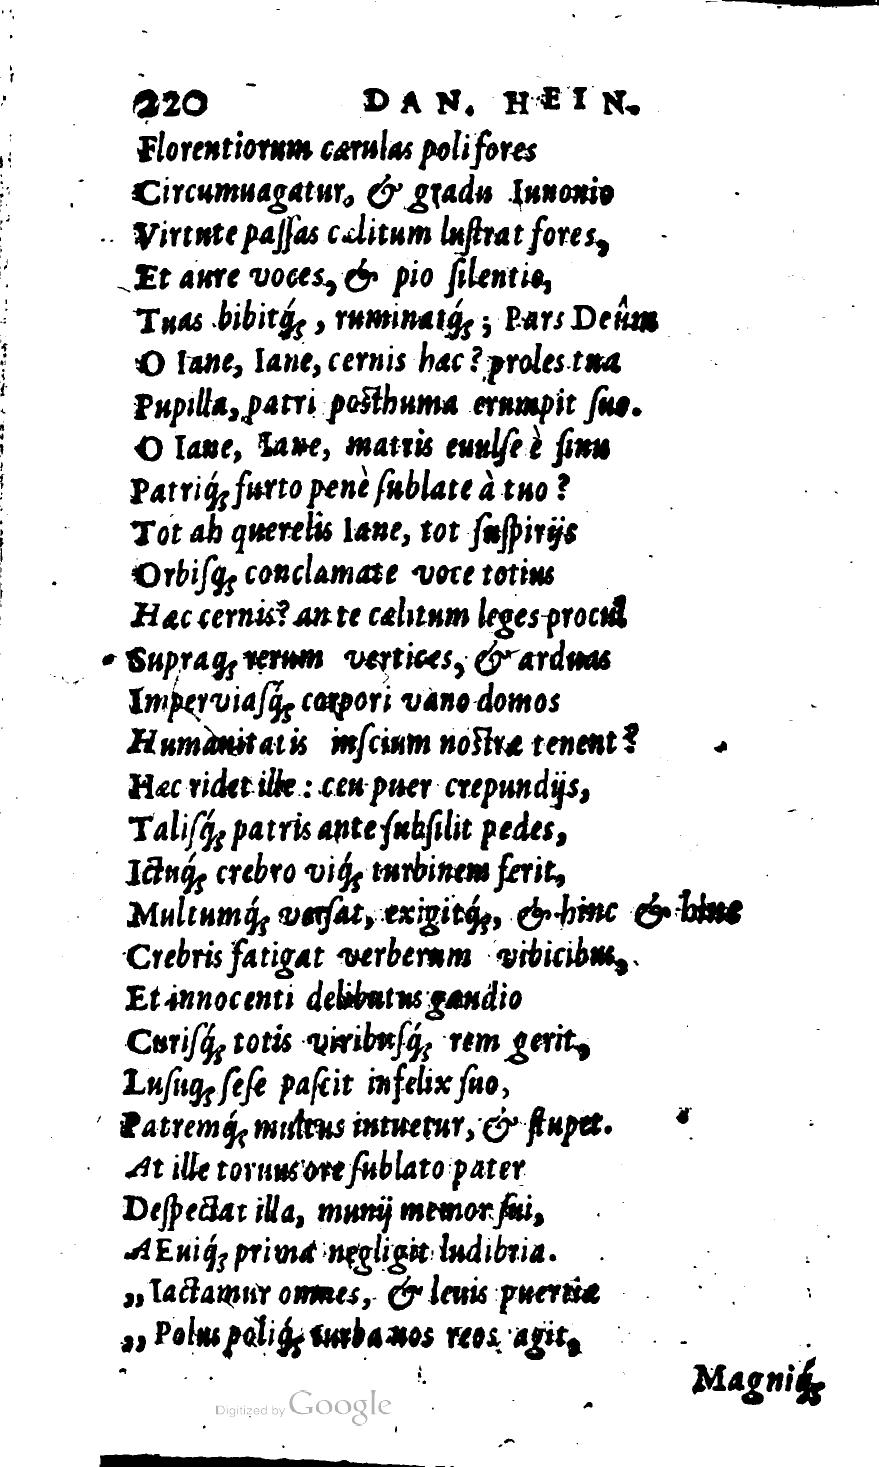 220 DAN. HEIN.
Florentiorum cærulas poli fores
Circumuagatur, & gradu Iunonio
Virtute passas cælitum lustrat fores,
Et aure voces, & pio silentio,
Tuas bibitq́; , ruminatq́; ; Pars Deûm
O Iane, Iane, cernis hæc? proles tua
Pupilla, patri posthuma erumpit suo.
O Iane, Iane, matris euulse è sinu
Patriq́; furto penè sublate à tuo?
Tot ah querelis Iane, tot suspirijs
Orbisq; conclamate voce totius
Hæc cernis? an te cælitum leges procul
Supraq; rerum vertices, & arduas
Imperviasq́; corpori vano domos
Humanitatis inscium nostræ tenent?
Hæc ridet ille : ceu puer crepundijs,
Talisq́; patris ante subsilit pedes,
Ictuq́; crebro viq́; turbinem ferit,
Multumq́; versat, exigitq́;, & hinc & hinc
Crebris fatigat verberum vibicibus,
Et innocenti delibutus gaudio
Curisq́; totis viribusq́; rem gerit,
Lusuq; sese pascit infelix suo,
Patremq́; multus intuetur, & stupet.
At ille toruus ore sublato pater
Despectat illa, munij memor sui,
AEuiq́; primâ negligit ludibria.
„ Iactamur omnes, & leuis pueriæ
„ Polus poliq́; turba nos reos agit,
Magniq́;
Digitized by Google